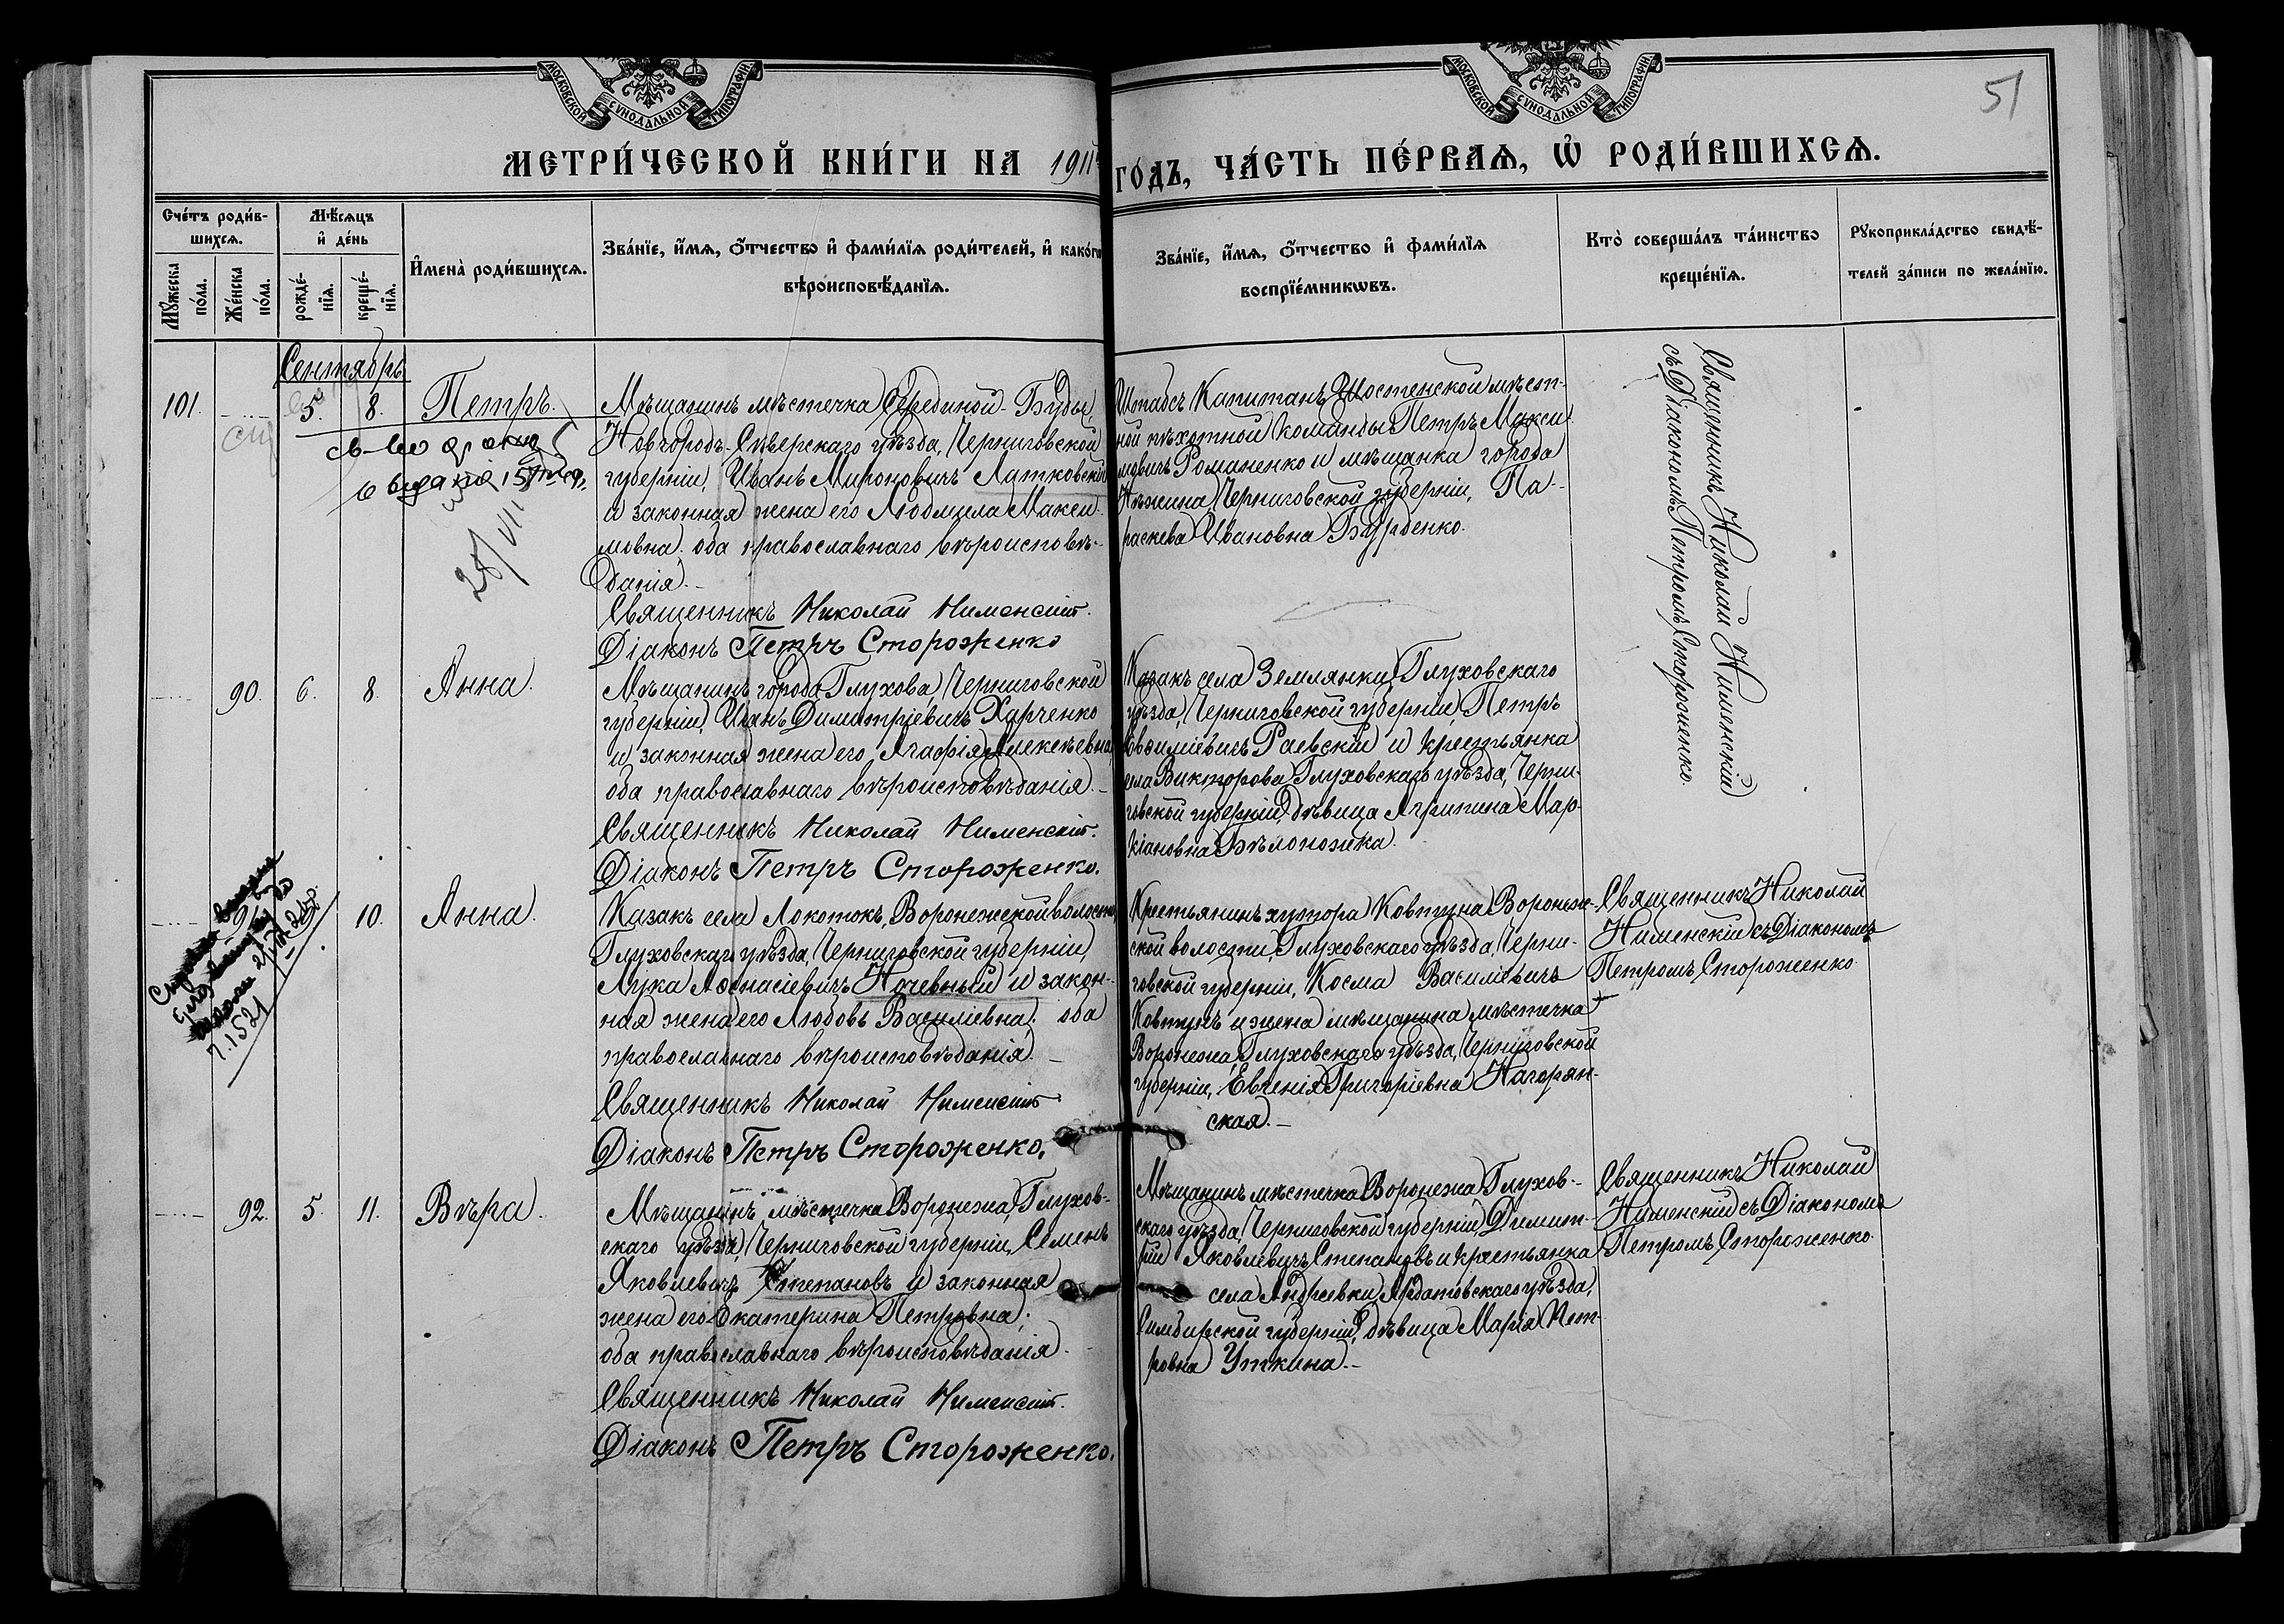 МОСКОВСКОЙ СѴНОДАЛЬНОЙ ТИПОГРАФІИ
МОСКОВСКОЙ СѴНОДАЛЬНОЙ ТИПОГРАФІИ
51
МЕТРИ́ЧЕСКОЙ КНИ́ГИ НА 1911
ГО́ДЪ, ЧА́СТЬ ПЕ́РВАѦ, Ѡ҆ РОДИ́ВШИХСѦ.
Сче́тъ роди́в-
шихсѧ.
Мꙋ́жеска
по́ла.
Же́нска
по́ла.
Мѣ́сѧцъ
и҆ де́нь
рожде́-
нїѧ.
креще́-
нїѧ.
И҆мена̀ роди́вшихсѧ.
Зва́нїе, и҆́мѧ, ѻ҆́тчество и҆ фами́лїѧ роди́телей, и҆ како́гѡ
вѣроисповѣ́данїѧ.
Зва́нїе, и҆́мѧ, ѻ҆́тчество и҆ фами́лїѧ
воспрїе́мникѡвъ.
Кто̀ соверша́лъ та́инство
креще́нїѧ.
Рꙋкоприкла́дство свидѣ́-
телей за́писи по жела́нїю.
Сентябрь
101. 5. 8. Петръ.
Мѣщанинъ мѣстечка Середино-Буды,
Новгородъ-Сѣверскаго уѣзда, Черниговской
губерніи, Иванъ Мироновичъ Латковскій
и законная жена его Людмила Макси-
мовна. оба православнаго вѣроисповѣ-
данія.-
Священникъ Николай Нименскій.
Діаконъ Петръ Стороженко
Штабсъ Капитанъ Шостенской мѣст-
ной пѣхотной команды Петръ Макси-
мовичъ Романенко и мѣщанка города
Нѣжина, Черниговской губерніи, Па-
раскева Ивановна Бурденко.
Священникъ Николай Нименскій
съ Діакономъ Петромъ Стороженко.
28/VII
90. 6. 8. Анна.
Мѣщанинъ города Глухова, Черниговской
губерніи, Иванъ Димитріевичъ Харченко
и законная жена его Агафія Алексѣевна,
оба православнаго вѣроисповѣданія.-
Священникъ Николай Нименскій.
Діаконъ Петръ Стороженко.
Казакъ села Землянки, Глуховскаго
уѣзда, Черниговской губерніи, Петръ
Евфиміевичъ Раевскій и крестьянка
села Викторова, Глуховскаго уѣзда, Черни-
говской губерніи, дѣвица Агрипина Мар-
кіановна Бѣлоножка.
91. 10. Анна.
Казакъ села Локотокъ, Воронежской волости,
Глуховскаго уѣзда, Черниговской губерніи,
Лука Аѳанасіевичъ Ночевный и закон-
ная жена его Любовь Василіевна. оба
православнаго вѣроисповѣданія. -
Священникъ Николай Нименскій
Діаконъ Петръ Стороженко.
Крестьянинъ хутора Ковтуна, Воронеж-
ской волости, Глуховскаго уѣзда, Черни-
говской губерніи, Косма Василіевичъ
Ковтунъ и жена мѣщанина мѣстечка
Воронежа, Глуховскаго уѣзда, Черниговской
губерніи, Евгенія Григоріевна Нагорян-
ская.-
Священникъ Николай
Нименскій съ Діакономъ
Петромъ Стороженко.
92. 5. 11. Вѣра.
Мѣщанинъ мѣстечка Воронежа, Глухов-
скаго уѣзда, Черниговской губерніи, Семенъ
Яковлевичъ Степановъ и законная
жена его Екатерина Петровна;
оба православнаго вѣроисповѣданія.-
Священникъ Николай Нименскій.
Діаконъ Петръ Стороженко.
Мѣщанинъ мѣстечка Воронежа, Глухов-
скаго уѣзда, Черниговской губерніи, Димит-
рій Яковлевичъ Степановъ и крестьянка
села Андреевки, Ардатовскаго уѣзда,
Симбирской губерніи, дѣвица Марія Пет-
ровна Уткина.-
Священникъ Николай
Нименскій съ Діакономъ
Петромъ Стороженко.